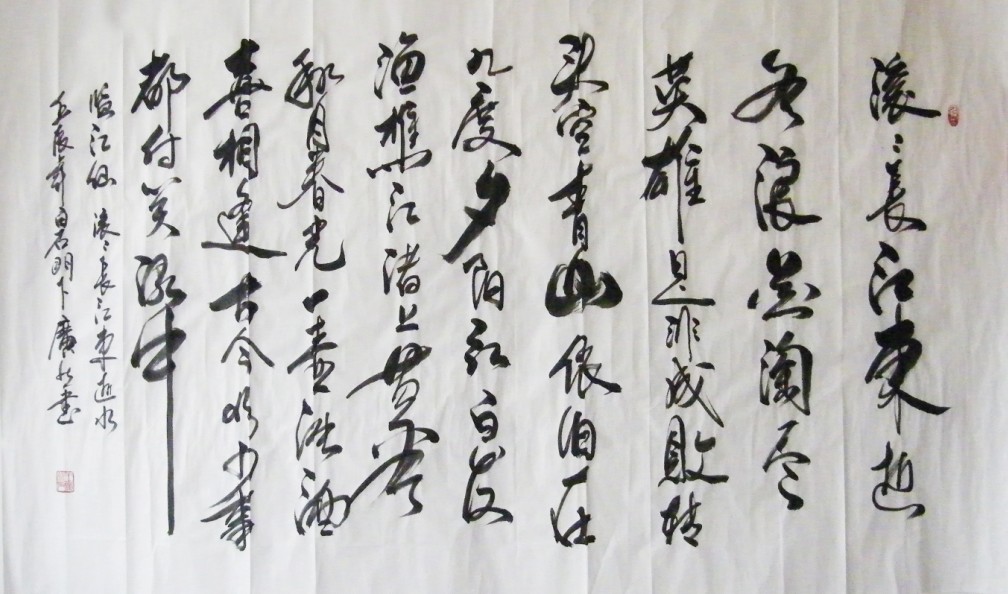 滚滚長江東逝
水浪花淘尽
英雄是非成敗转
头空青山依旧在
几度夕阳红白发
渔樵江渚上惯看
秋月春光一壶浊酒
喜相逢古今多少事
都付笑谈中
临江仙 滚滚長江東逝水
壬辰年 下廣 書